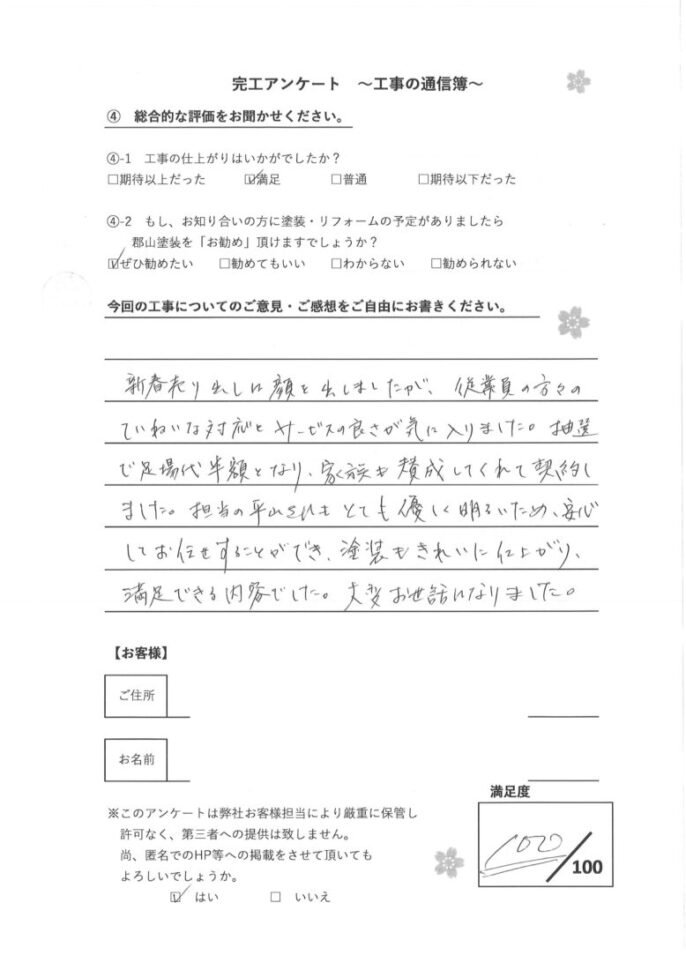 完工アンケート ～工事の通信簿～
④ 総合的な評価をお聞かせください。
④-1 工事の仕上がりはいかがでしたか？
□期待以上だった ☑満足 □普通 □期待以下だった
④-2 もし、お知り合いの方に塗装・リフォームの予定がありましたら
郡山塗装を「お勧め」頂けますでしょうか？
☑ぜひ勧めたい □勧めてもいい □わからない □勧められない
今回の工事についてのご意見・ご感想をご自由にお書きください。
新春売り出しに顔を出しましたが、従業員の方々の
ていねいな対応とサービスの良さが気に入りました。抽選
で足場代半額となり、家族も賛成してくれて契約し
ました。担当の平山さんもとても優しく明るいため、安心
してお任せすることができ、塗装もきれいに仕上がり、
満足できる内容でした。大変お世話になりました。
【お客様】
ご住所
お名前
満足度
/100
※このアンケートは弊社お客様担当により厳重に保管し
許可なく、第三者への提供は致しません。
尚、匿名でのHP等への掲載をさせて頂いても
よろしいでしょうか。
☑ はい □ いいえ